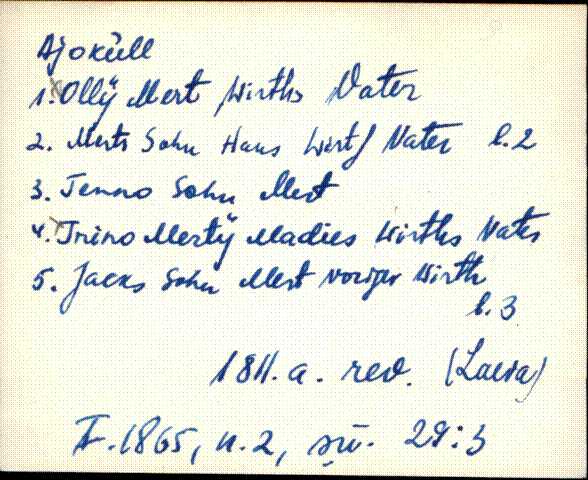 Ajoküll
1. Ollÿ Mert Wirths Vater
2. Merts Sohn Hans Wirths Vater l. 2
3. Jenno Sohn Mert
4. Jnino Mertÿ Madies Wirths Vater
5. Jacks Sohn Mert voriger Wirth
l. 3
1811. a. rev. (Laeva)
F. 1865, n. 2, sü. 29:3